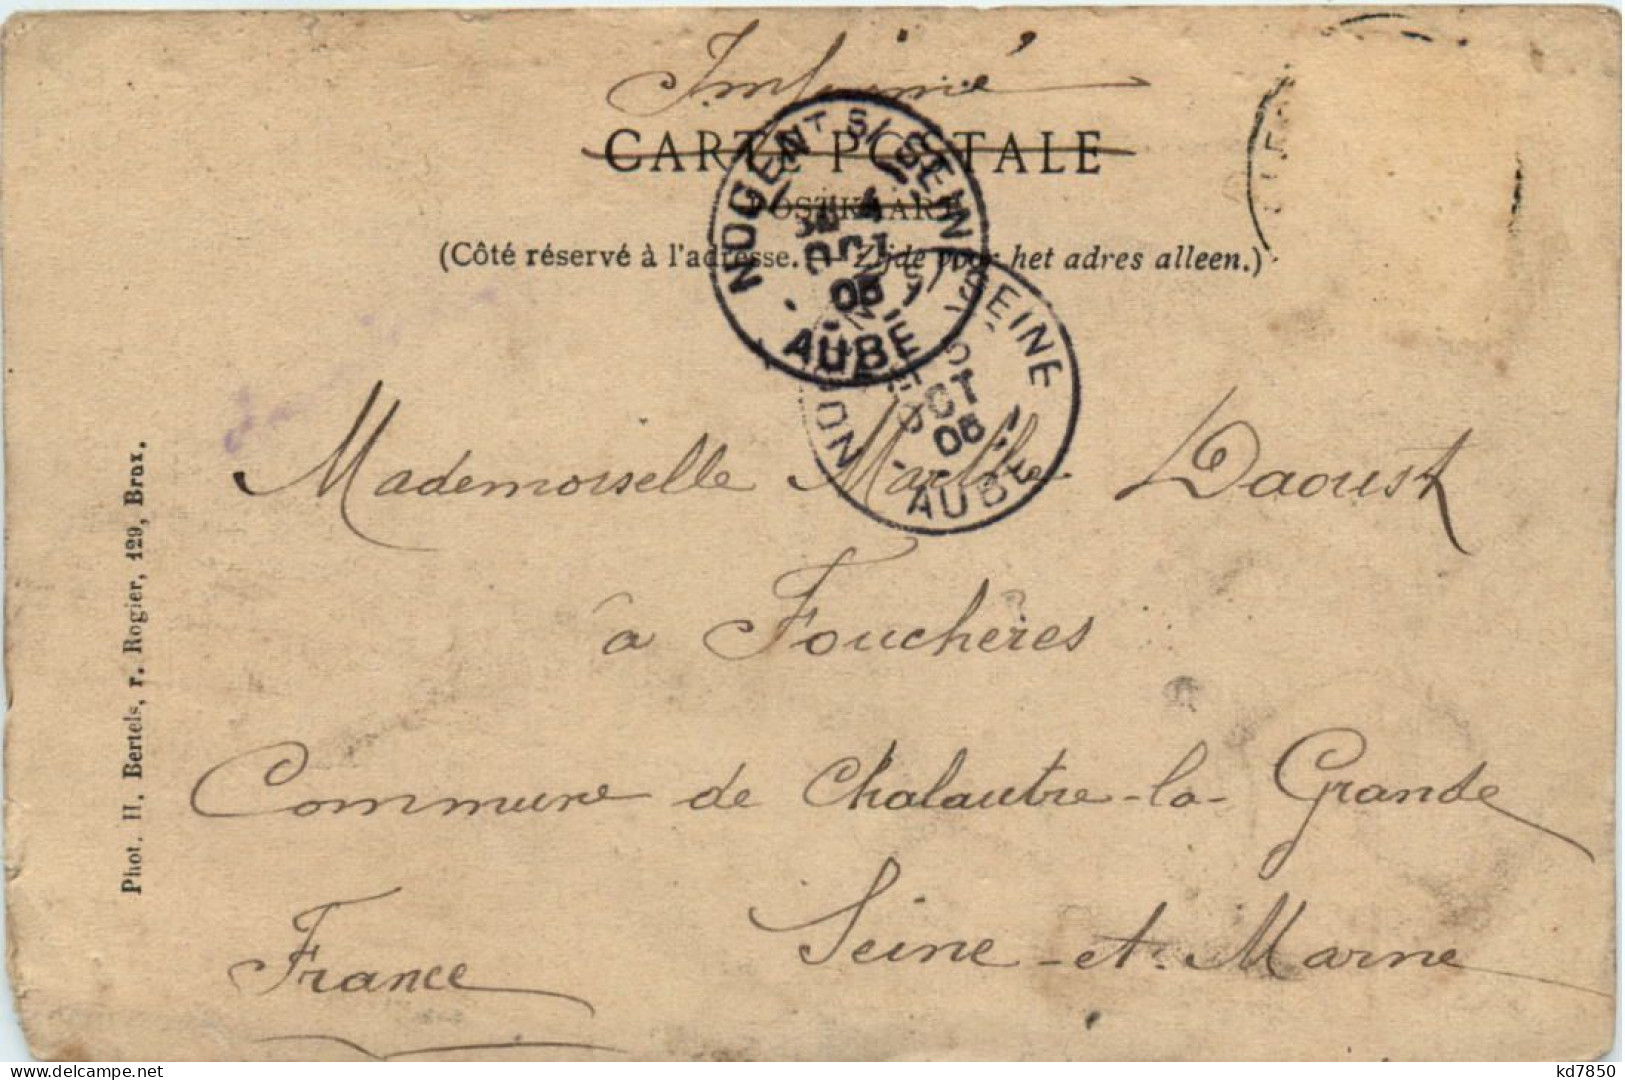 Imprimé
CARTE POSTALE
POSTKAART
(Côté réservé à l'adresse. — Zijde voor het adres alleen.)
NOGENT S/ SEINE
OCT
05
AUBE
SEINE
OCT
05
AUBE
Mademoiselle Marthe Daoust
à Fouchères
Commune de Chalautre-la-Grande
Seine-et-Marne
France
Phot. H. Bertels, r. Rogier, 129, Brux.
kd7850